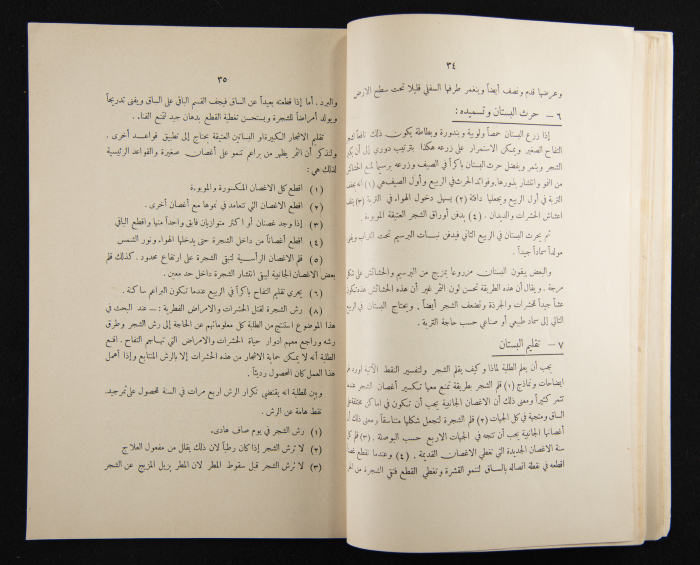 ٣٤
وعرضها قدم ونصف أيضاً وينغمر طرفها السفلي قليلا تحت سطح الارض
٦ – حرث البستان وتسميده :
إذا زرع البستان حصاً ولوبية وبندورة وبطاطة يكون ذلك نافعاً
التفاح الصغير ويمكن الاستمرار على زرعه هكذا بترتيب دوري إلى أن يكبر
الشجر ويثمر ويفضل حرث البستان باكراً في الصيف وزرعه برسيماً لمنع الحشائش
من النمو وانتشار بذورها. وفوائد الحرث في الربيع وأول الصيف هي (١) انه يجفف
التربة في أول الربيع ويجعلها دافئة (٢) يسهل دخول الهواء في التربة (٣)
اعشاش الحشرات والديدان . (٤) يدفن أوراق الشجر العتيقة الموبوءة.
ثم يحرث البستان في الربيع الثاني فيدفن نبات البرسيم تحت التراب ويفنى
مولداً سماداً جيداً .
والبعض يبقون البستان مزروعا بمزيج من البرسيم والحشائش على شكل
مرجة . ويقال أن هذه الطريقة تحسن لون الثمر غير أن هذه الحشائش هذه تكون
عشاً جيداً للحشرات والجرذة وتضعف الشجر أيضاً . ويحتاج البستان في الربيع
التالي إلى سماد طبيعي أو صناعي حسب حاجة التربة .
٧ – تقليم البستان
يجب أن يعلم الطلبة لماذا وكيف يقلم الشجر ولتفسير النقط الآتية اورد
ايضاحات ونماذج (١) قلم الشجر بطريقة تمنع معها تكسير أغصان الشجر عندما
تثمر كثيراً ومعنى ذلك أن الاغصان الجانبية يجب أن تكون في اماكن مختلفة على
الساق ومتجهة في كل الجهات (٢) قلم الشجرة لتجعل شكلها متناسقاً ومعنى ذلك أن
أغصانها الجانبية يجب أن تتجه في الجهات الاربع حسب البوصلة . (٣) قلم كل
سنة الاغصان الجديدة التي تغطي الاغصان القديمة . (٤) وعندما تقطع غصناً
اقطعه في نقطة اتصاله بالساق لتنمو القشرة وتغطي القطع فتقي الشجرة من الحر
٣٥
والبرد . أما إذا قطعته بعيداً عن الساق فيجف القسم الباقي على الساق ويفنى تدريجاً
ويولد أمراضاً للشجرة ويستحسن تغطية القطع بدهان جيد لمنع الفناء .
تقليم الاشجار الكبيرة او البساتين العتيقة يحتاج إلى تطبيق قواعد أخرى .
ولنذكر أن الثمر يظهر من براعم تنمو على أغصان صغيرة والقواعد الرئيسية
لذلك هي :
(١) اقطع كل الاغصان المنكسورة والموبوءة
(٢) اقطع الاغصان التي تتعامد في نموها مع أغصان أخرى .
(٣) إذا وجد غصنان أو اكثر متوازيان فابق واحداً منها واقطع الباقي
(٤) اقطع أغصاناً من داخل الشجرة حتى يدخلها الهواء ونور الشمس
(٥) قلم الاغصان الرأسية لتبقى الشجرة على ارتفاع محدود . كذلك قلم
بعض الاغصان الجانبية ليبقى انتشار الشجرة داخل حد معين .
(٦) يجري تقليم التفاح باكراً في الربيع عندما تكون البراعم ساكنة .
(٨) رش الشجرة لقتل الحشرات والامراض الفطرية : — عند البحث في
هذا الموضوع استنتج من الطلبة كل معلوماتهم عن الحاجة إلى رش الشجر وطرق
رشه وراجع معهم ادوار حياة الحشرات والامراض التي تهاجم التفاح . اقنع
الطلبة أنه لا يمكن حماية الاشجار من هذه الحشرات إلا بالرش المتتابع وإذا أهمل
هذا العمل كان المحصول رديئاً .
وبين للطلبة انه يقتضي تكرار الرش اربع مرات في السنة للحصول على ثمر جيد.
نقط هامة عن الرش .
(١) رش الشجر في يوم صاف هادىء.
(٢) لا ترش الشجر إذا كان رطباً لان ذلك يقلل من مفعول العلاج
(٣) لا ترش الشجر قبل سقوط المطر لان المطر يزيل المزيج عن الشجر